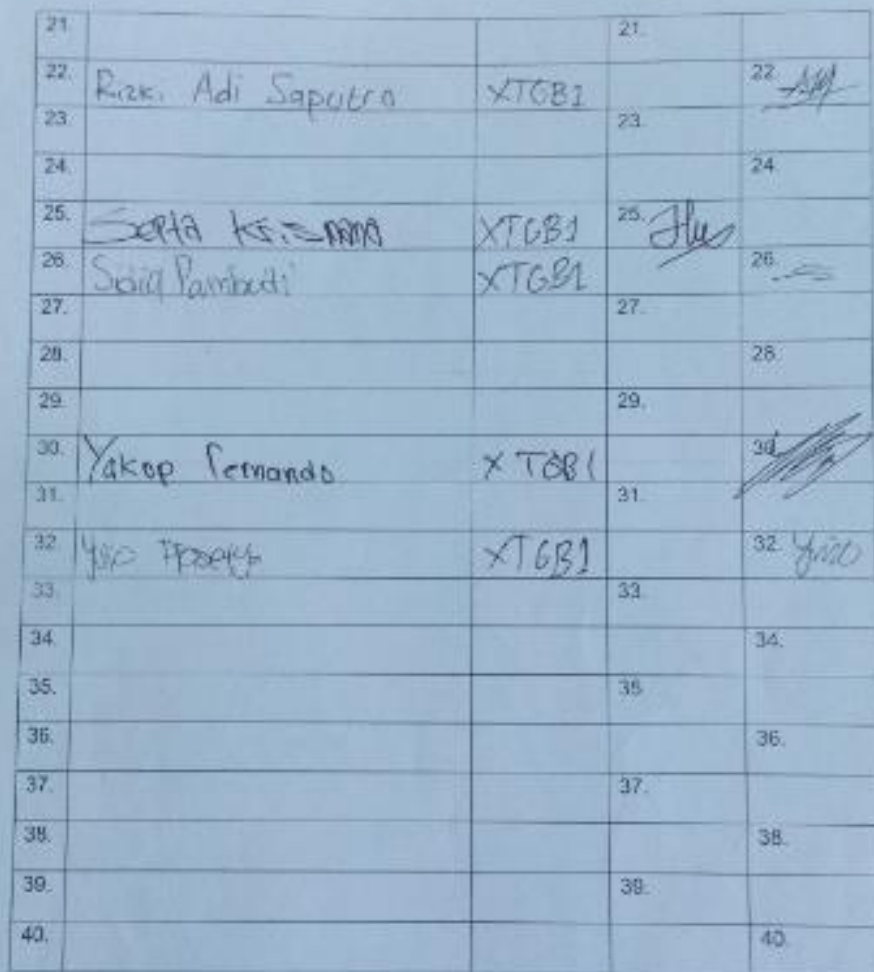 21. 21.
22. Rizki Adi Saputro XTGB1 22.
23. 23.
24. 24.
25. Septa Krisnana XTGB1 25.
26. Sidiq Pambudi XTGB1 26.
27. 27.
28. 28.
29. 29.
30. Yakop Fernando X TGB1 30.
31. 31.
32. XTGB1 32.
33. 33.
34. 34.
35. 35.
36. 36.
37. 37.
38. 38.
39. 39.
40. 40.